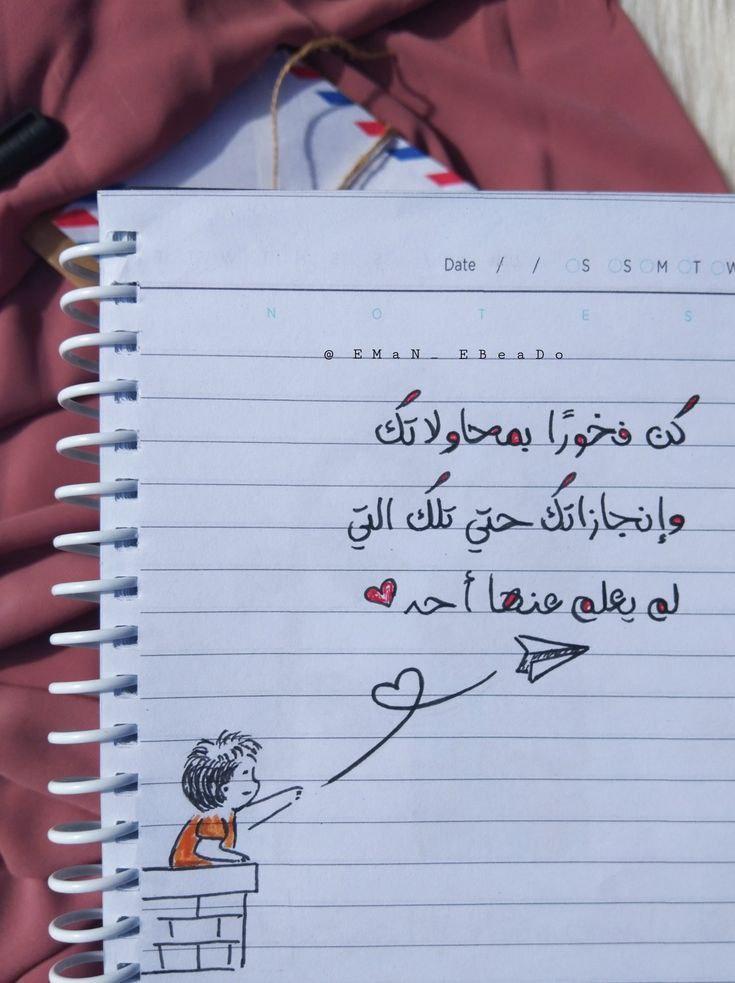 Date / / S S M T W
N O T E S
@ EMaN_ EBeaDo
كُن فخورًا بمحاولاتكَ
وإنجازاتكَ حتي تلكَ التي
لم يعلم عنها أحد